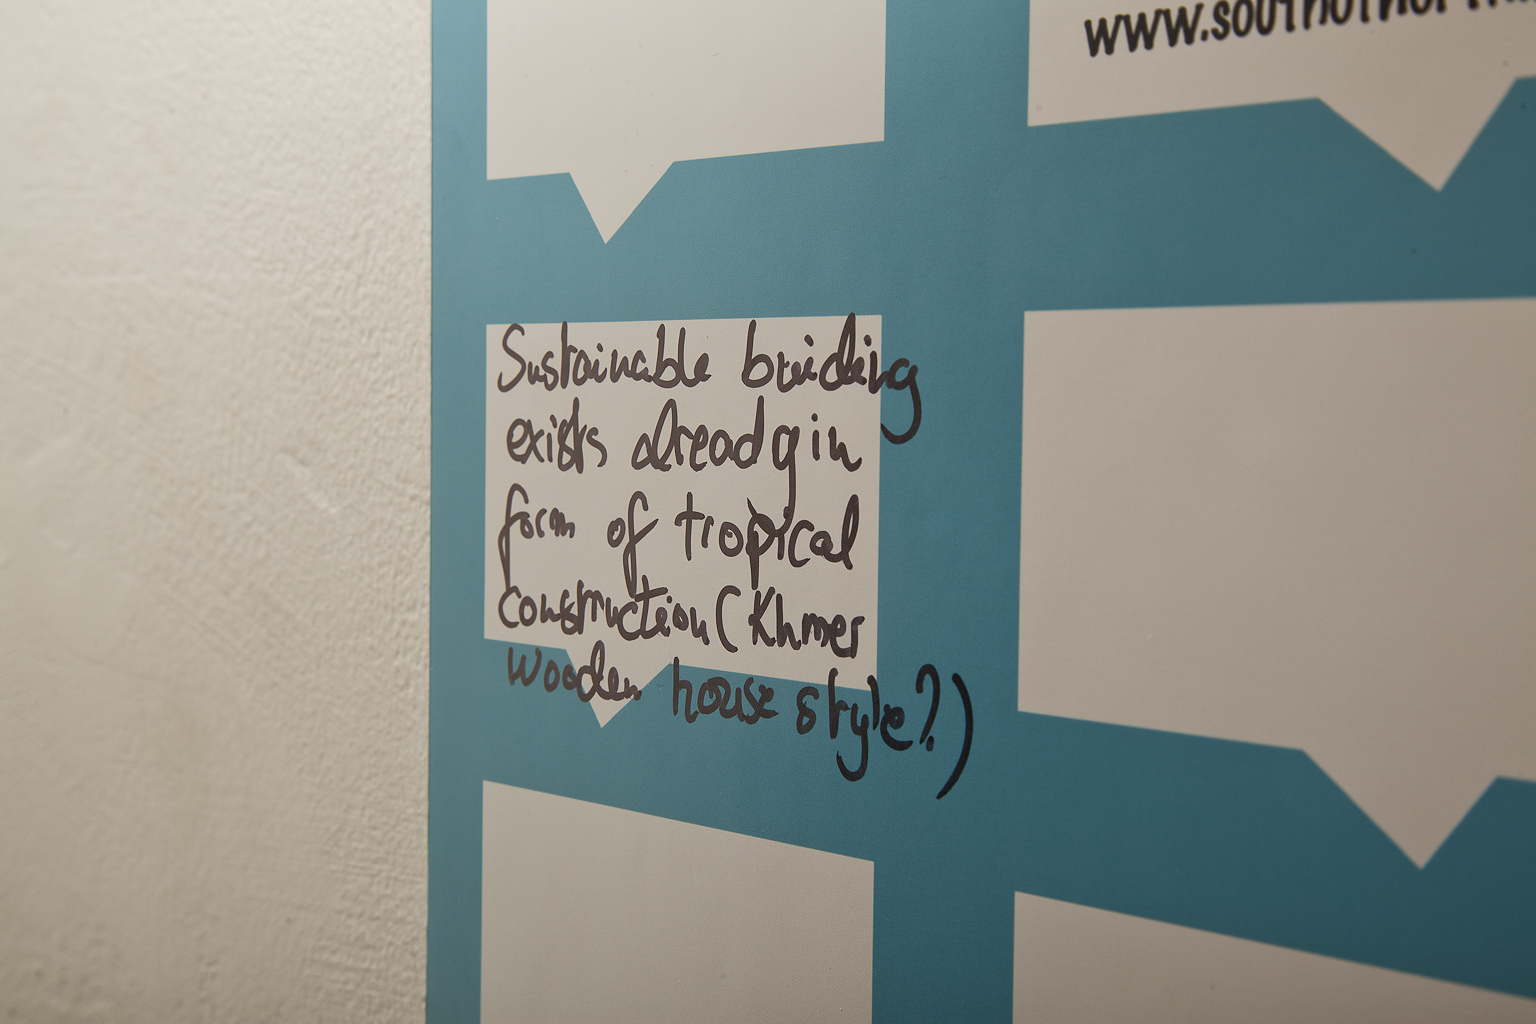 Sustainable building
exists already in
form of tropical
construction (Khmer
wooden house style?)